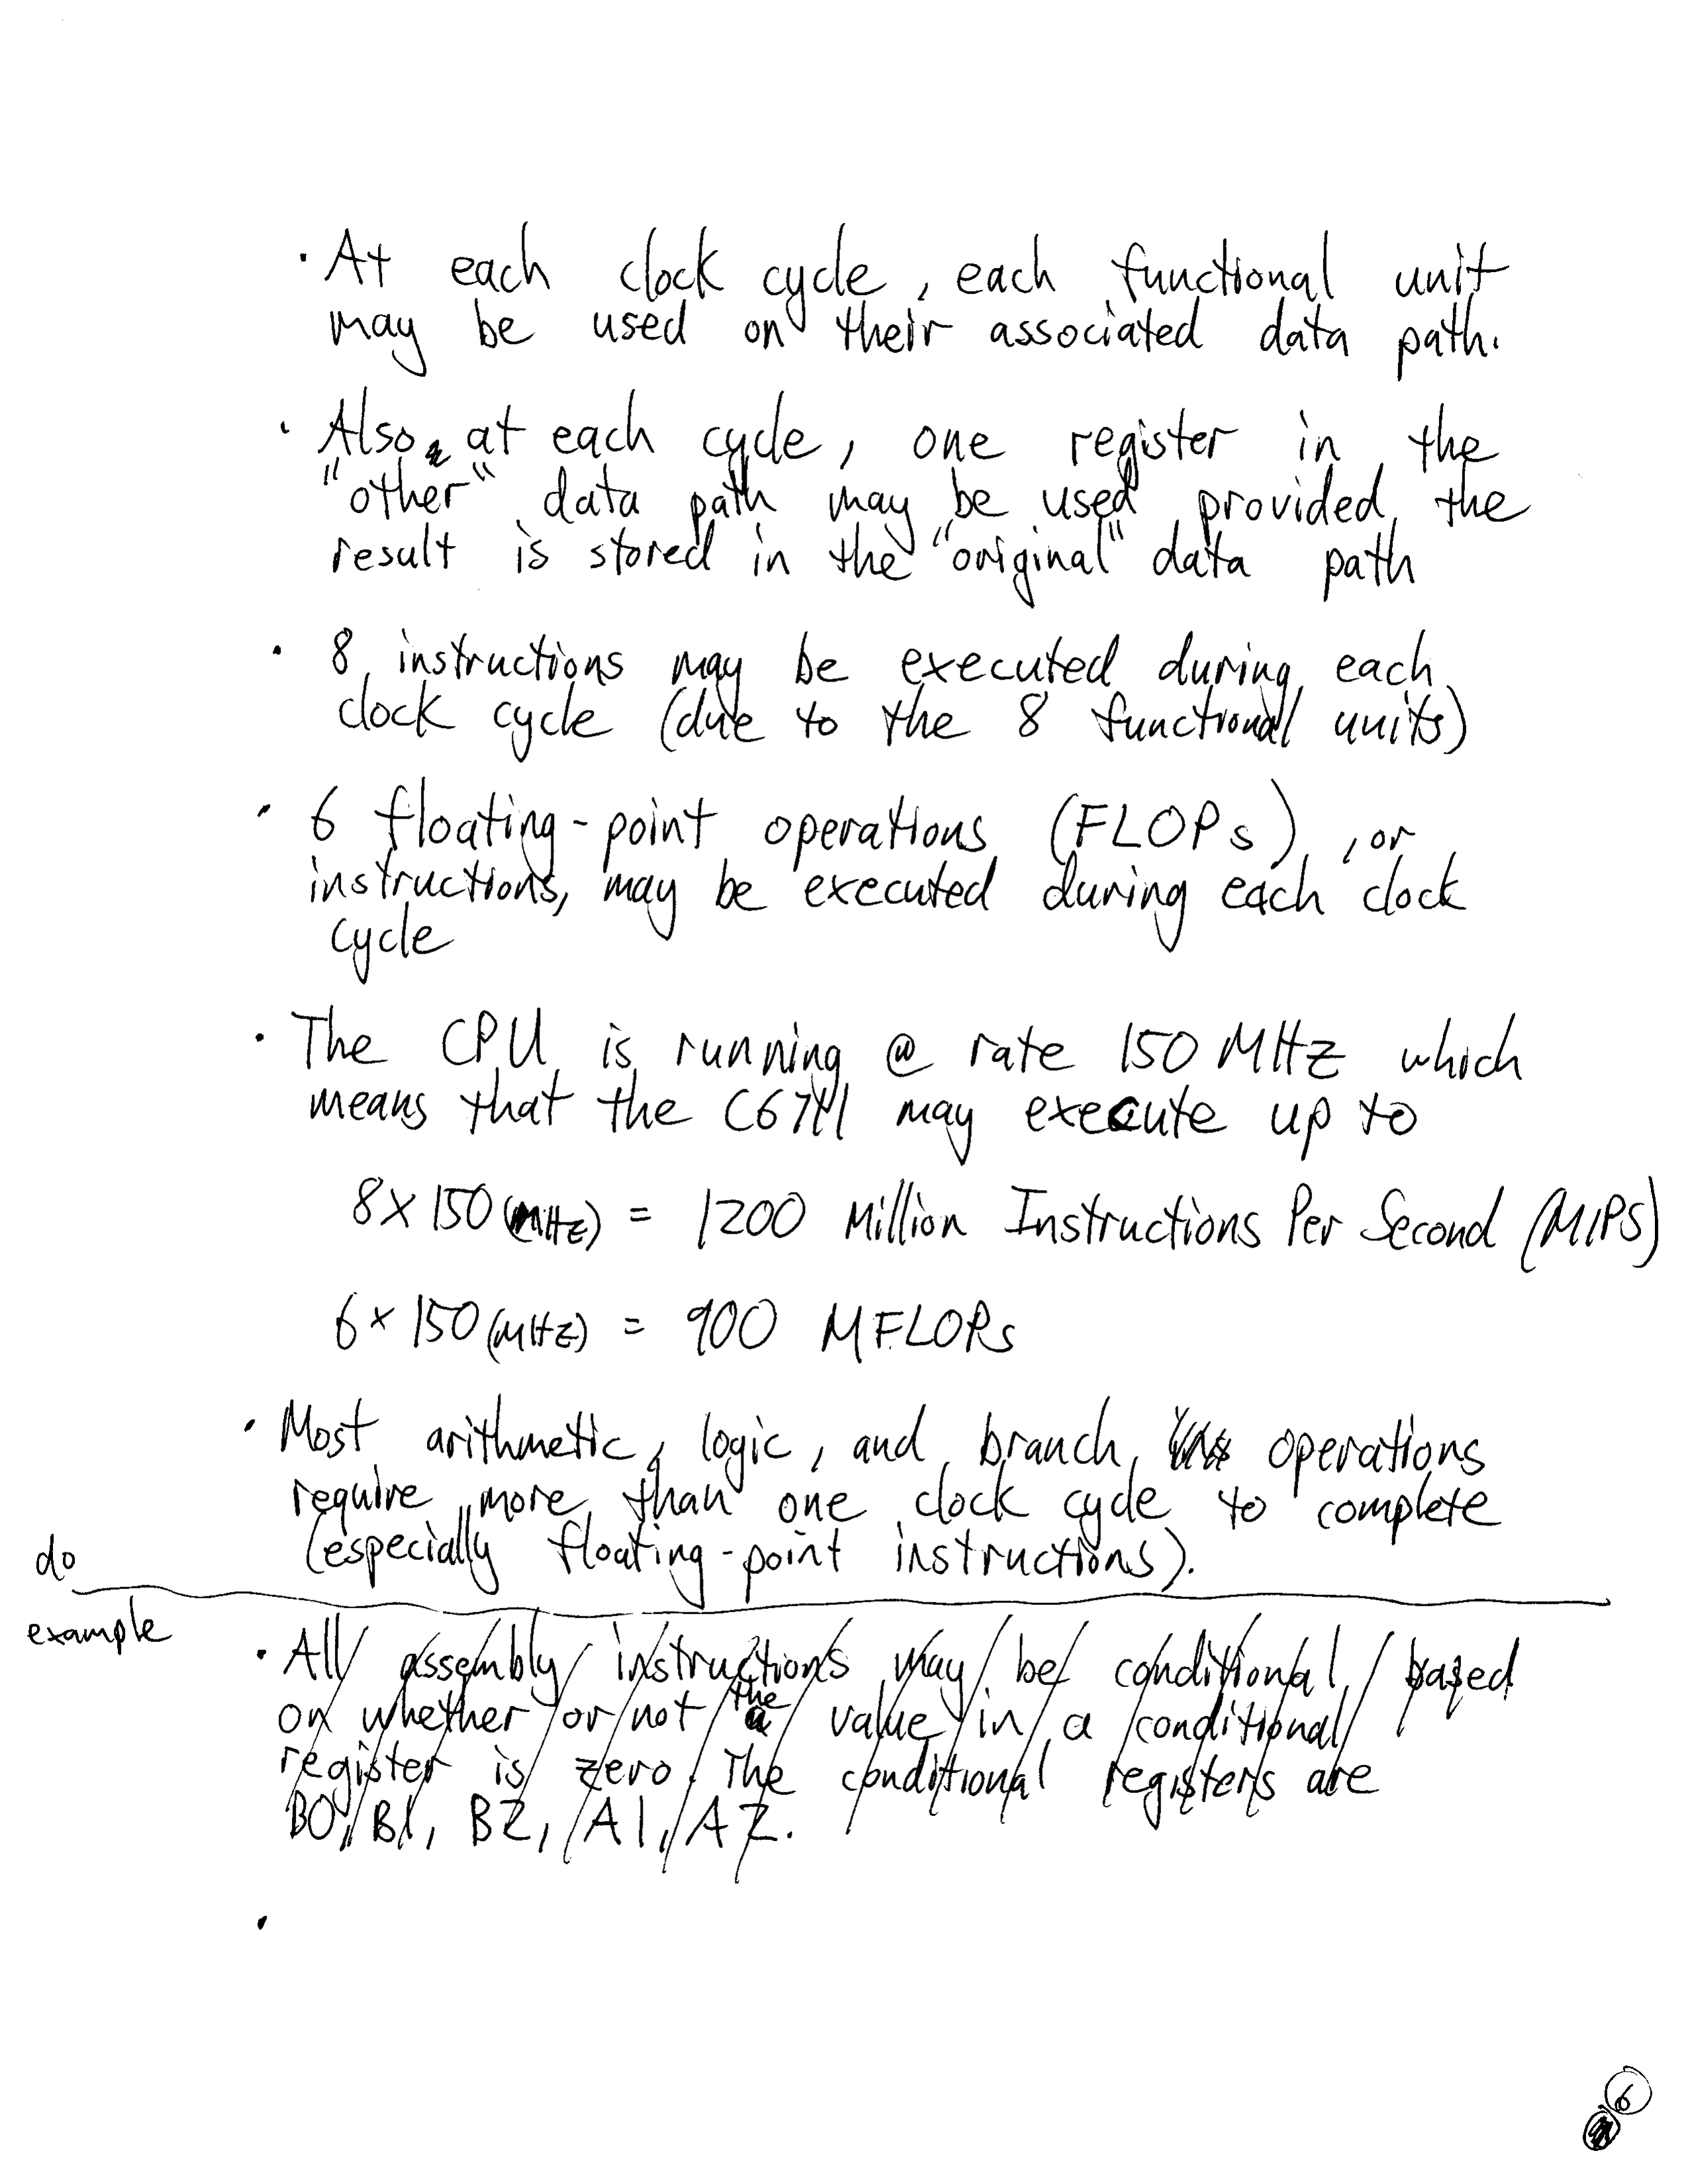 · At each clock cycle, each functional unit
may be used on their associated data path.
· Also, at each cycle, one register in the
"other" data path may be used provided the
result is stored in the "original" data path
· 8 instructions may be executed during each
clock cycle (due to the 8 functional units)
· 6 floating-point operations (FLOPs), or
instructions, may be executed during each clock
cycle
· The CPU is running @ rate 150 MHz which
means that the may execute up to
8 x 150 (MHz) = 1200 Million Instructions Per Second (MIPS)
6 x 150 (MHz) = 900 MFLOPs
· Most arithmetic, logic, and branch operations
require more than one clock cycle to complete
(especially floating-point instructions).
do
example
· All assembly instructions may be conditional, based
on whether or not the value in a conditional
register is zero. The conditional registers are
B0, B1, B2, A1, A2.
·
6